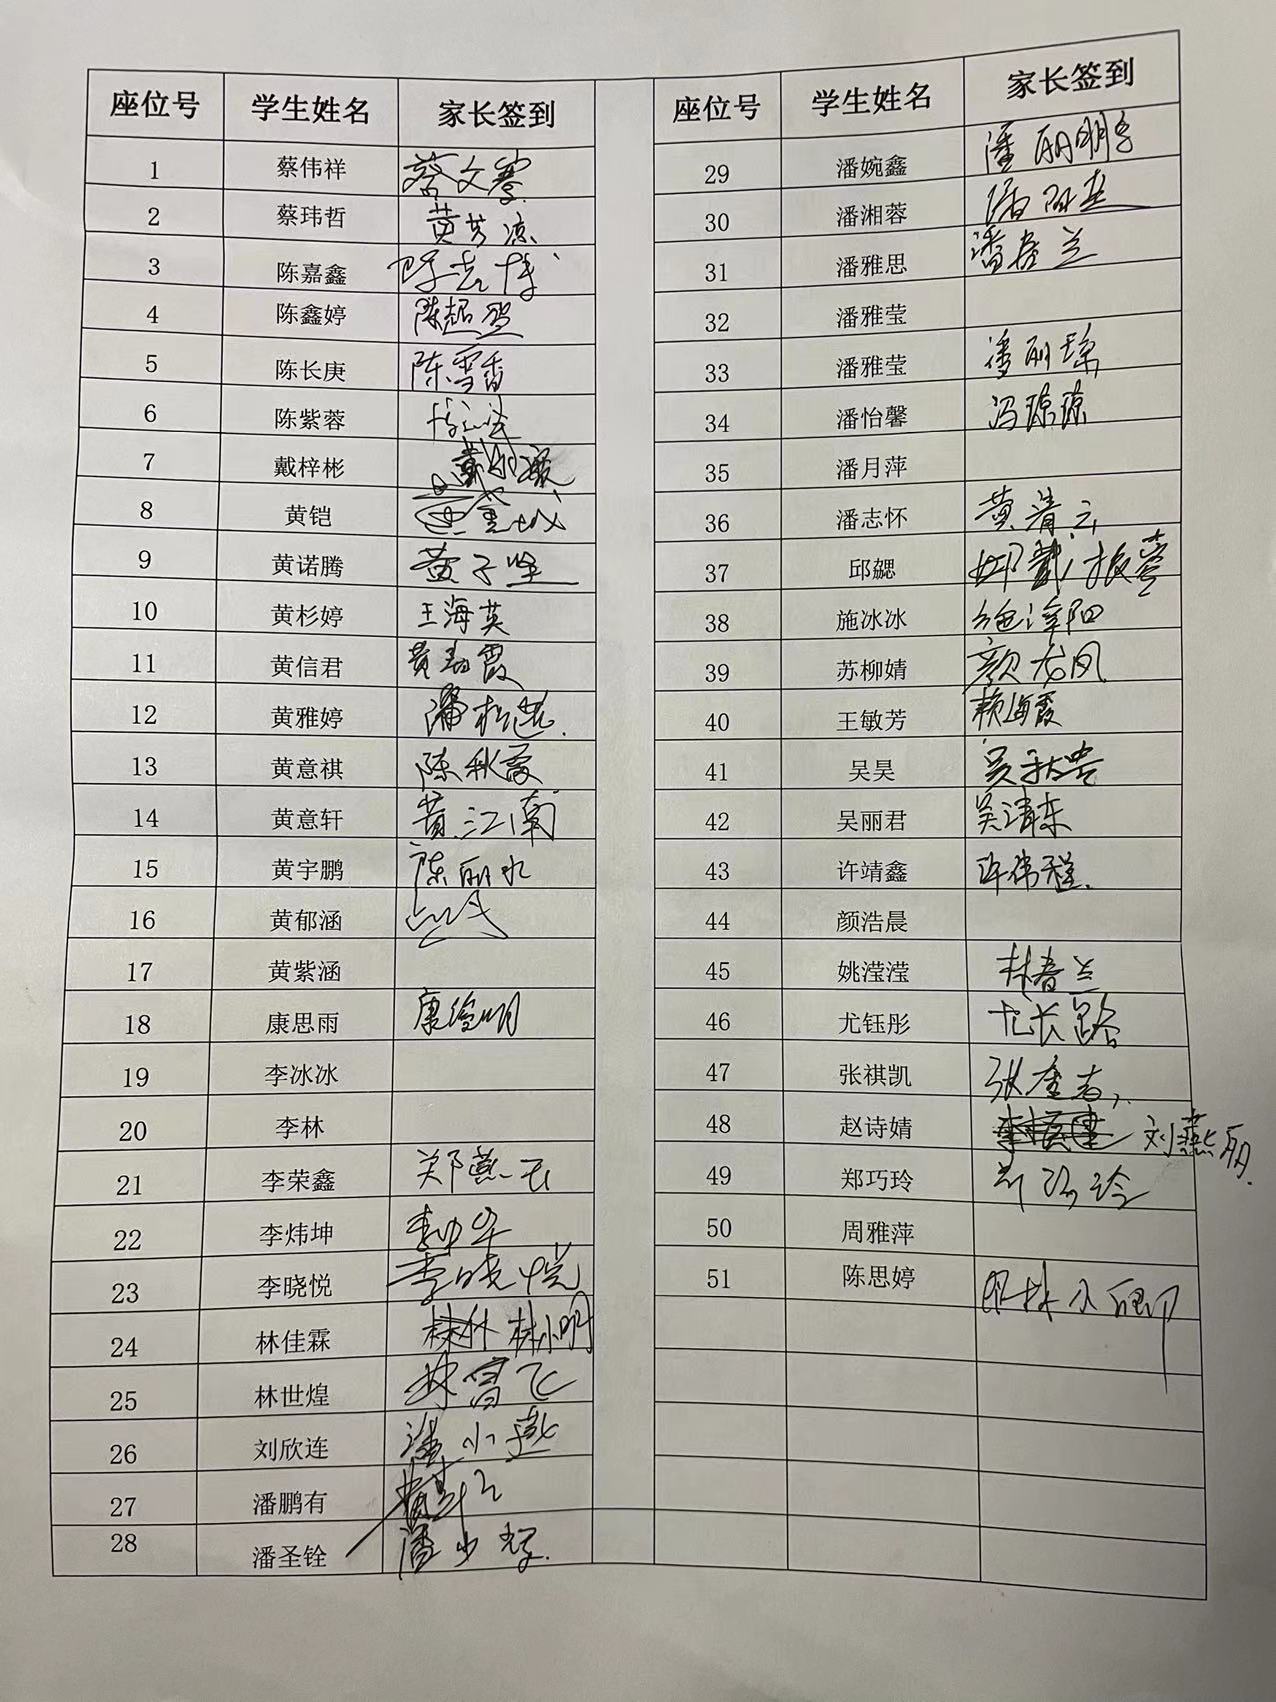 座位号 学生姓名 家长签到 座位号 学生姓名 家长签到
1 蔡伟祥 蔡文骞 29 潘婉鑫 潘丽明
2 蔡玮哲 黄芳凉 30 潘湘蓉 潘
3 陈嘉鑫 陈志博 31 潘雅思 潘春兰
4 陈鑫婷 陈超 32 潘雅莹
5 陈长庚 陈雪香 33 潘雅莹 潘丽琼
6 陈紫蓉 34 潘怡馨 冯琼琼
7 戴梓彬 戴 35 潘月萍
8 黄铠 36 潘志怀 黄清云
9 黄诺腾 黄子坚 37 邱勰
10 黄杉婷 王海英 38 施冰冰 施淳阳
11 黄信君 黄 霞 39 苏柳婧 颜龙凤
12 黄雅婷 潘松莲 40 王敏芳 赖海霞
13 黄意祺 陈秋霞 41 吴昊 吴秋
14 黄意轩 黄江南 42 吴丽君 吴清东
15 黄宇鹏 陈丽水 43 许靖鑫 许伟程
16 黄郁涵 44 颜浩晨
17 黄紫涵 45 姚滢滢 林春兰
18 康思雨 康 明 46 尤钰彤 尤长路
19 李冰冰 47 张祺凯 张奎
20 李林 48 赵诗婧 刘燕丽
21 李荣鑫 郑燕云 49 郑巧玲
22 李炜坤 李 50 周雅萍
23 李晓悦 李晓悦 51 陈思婷 林小卿
24 林佳霖 林小明
25 林世煌 林富飞
26 刘欣连 潘小燕
27 潘鹏有
28 潘圣铨 潘少